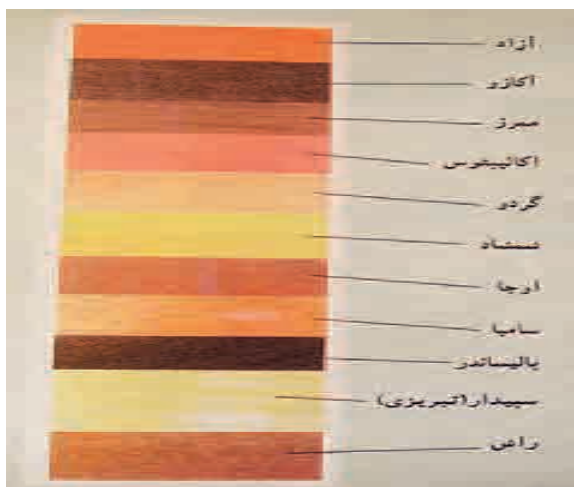 آزاد
اکاژو
ممرز
اکالیپتوس
گردو
شمشاد
اوجا
سامبا
پالیساندر
سپیدار(تبریزی)
راش